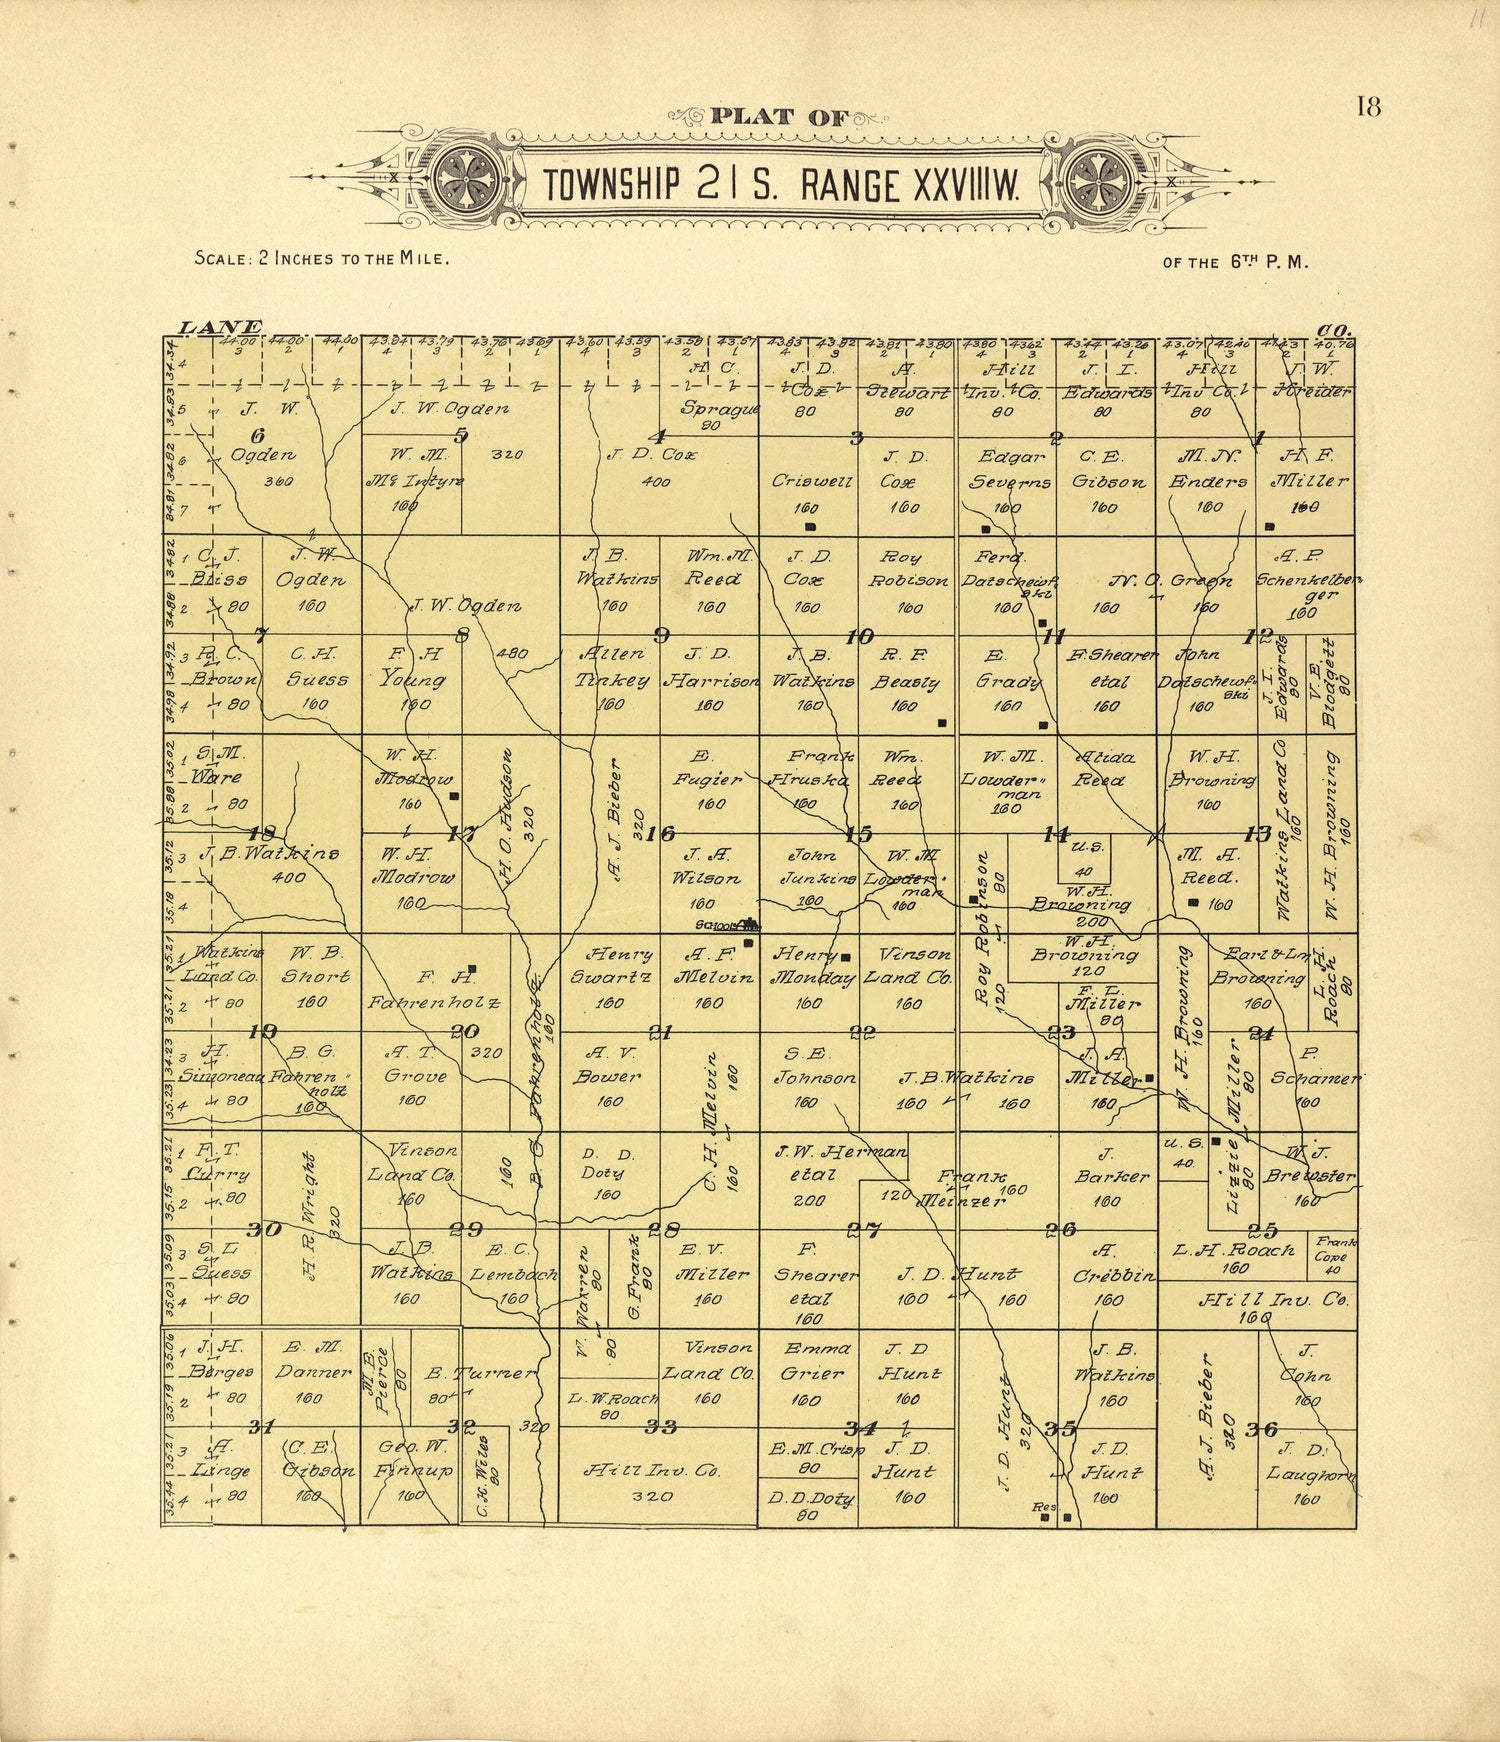 11
18
PLAT OF
TOWNSHIP 21 S. RANGE XXVIII W.
SCALE: 2 INCHES TO THE MILE.
OF THE 6TH P. M.
LANE
CO.
44.00 44.00 44.00 43.84 43.79 43.76 43.69 43.60 43.59 43.58 43.57 43.83 43.82 43.81 43.80 43.80 43.44 43.26 43.07 40.76
3 2 1 4 3 2 1 4 3 2 1 4 3 2 1 4 3 2 1 4 3 2 1
J. W.
Ogden
360
6
J. W. Ogden
5
320
W. M.
McIntyre
160
H. C.
Sprague
80
4
J. D. Cox
400
J. D.
Cox
80
A.
Stewart
80
3
Criswell
160
J. D.
Cox
160
Hill
Inv. Co.
80
J. I.
Edwards
80
2
Edgar
Severns
160
C. E.
Gibson
160
Hill
Inv Co.
80
J. W.
Kreider
1
M. N.
Enders
160
H. F.
Miller
160
C. J.
Bliss
80
J. W.
Ogden
160
7
R. C.
Brown
80
C. H.
Suess
160
J. W. Ogden
8
480
F. H
Young
160
J. B.
Watkins
160
Wm. M.
Reed
160
9
Allen
Tinkey
160
J. D.
Harrison
160
J. D.
Cox
160
Roy
Robison
160
10
J. B.
Watkins
160
R. F.
Beasly
160
Ferd.
Datschewf-
ski
160
N. O. Green
160
160
11
E.
Grady
160
F. Shearer
etal
160
A. P.
Schenkelber
ger
160
12
John
Datschewf-
ski
160
J. I.
Edwards
80
V. E.
Blodgett
80
S. M.
Ware
80
18
J. B. Watkins
400
W. H.
Modrow
160
17
W. H.
Modrow
160
H. O. Hudson
320
A. J. Bieber
320
16
E.
Fugier
160
J. A.
Wilson
160
School
Frank
Hruska
160
Wm.
Reed
160
15
John
Junkins
160
W. M
Lowder-
man
160
W. M.
Lowder-
man
160
Alida
Reed
14
Roy Robinson
80
120
U. S.
40
W. H.
Browning
200
W. H.
Browning
160
13
M. A.
Reed.
160
Watkins Land Co
160
W. H. Browning
160
Watkins
Land Co.
80
W. B.
Short
160
19
H.
Simoneau
80
B. G.
Fahren-
holz
160
F. H.
Fahrenholz
20
320
A. T.
Grove
160
B. G. Fahrenholz
160
160
Henry
Swartz
160
A. F.
Melvin
160
21
A. V.
Bower
160
C. H. Melvin
160
160
Henry
Monday
160
Vinson
Land Co.
160
22
S. E.
Johnson
160
J. B. Watkins
160
160
W. H.
Browning
120
F. L.
Miller
80
23
J. A.
Miller
160
W. H. Browning
160
Browning
160
L. H.
Roach
80
24
Lizzie Miller
80
80
P.
Schamer
160
F. T.
Curry
80
H. R. Wright
320
30
S. L
Suess
80
Vinson
Land Co.
160
29
J. B.
Watkins
160
E. C.
Lembach
160
D. D.
Doty
160
28
V. Warren
80
80
G. Frank
80
E. V.
Miller
160
J. W. Herman
etal
200
120
27
F.
Shearer
etal
160
J. D. Hunt
160
160
Frank
Meinzer
160
J.
Barker
160
26
A.
Crebbin
160
U. S.
40.
W. J.
Brewster
160
25
L. H. Roach
160
Frank
Cope
40
Hill Inv. Co.
160
J. H.
Berges
80
E. M.
Danner
160
31
A.
Linge
80
C. E.
Gibson
160
M. E.
Pierce
80
E. Turner
80
320
32
Geo. W.
Finnup
160
C. H. Wiles
80
L. W. Roach
80
Vinson
Land Co.
160
33
Hill Inv. Co.
320
Emma
Grier
160
J. D
Hunt
160
34
E. M. Crisp
80
D. D. Doty
80
J. D.
Hunt
160
J. D. Hunt
320
J. B.
Watkins
160
35
J. D.
Hunt
160
Res
A. J. Bieber
320
36
J.
Cohn
160
J. D.
Laughorn
160